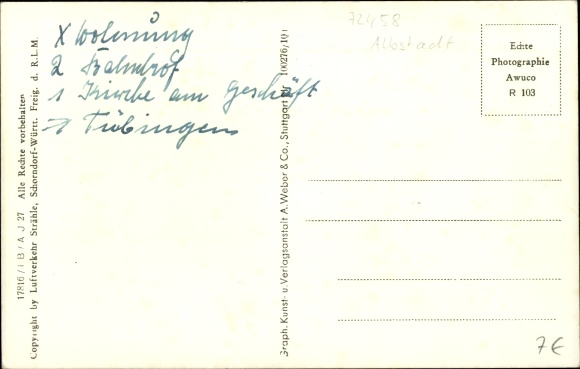 X Wohnung
2 Bahnhof
1 Kirche am Geschäft
→ Tübingen
72458
Albstadt
Echte
Photographie
Awuco
R 103
17816/I B/A J 27 Alle Rechte vorbehalten
Copyright by Luftverkehr Strähle, Schorndorf-Württ. Freig. d. R.L.M.
Graph. Kunst- u. Verlagsanstalt A. Weber & Co., Stuttgart Nr.
7€